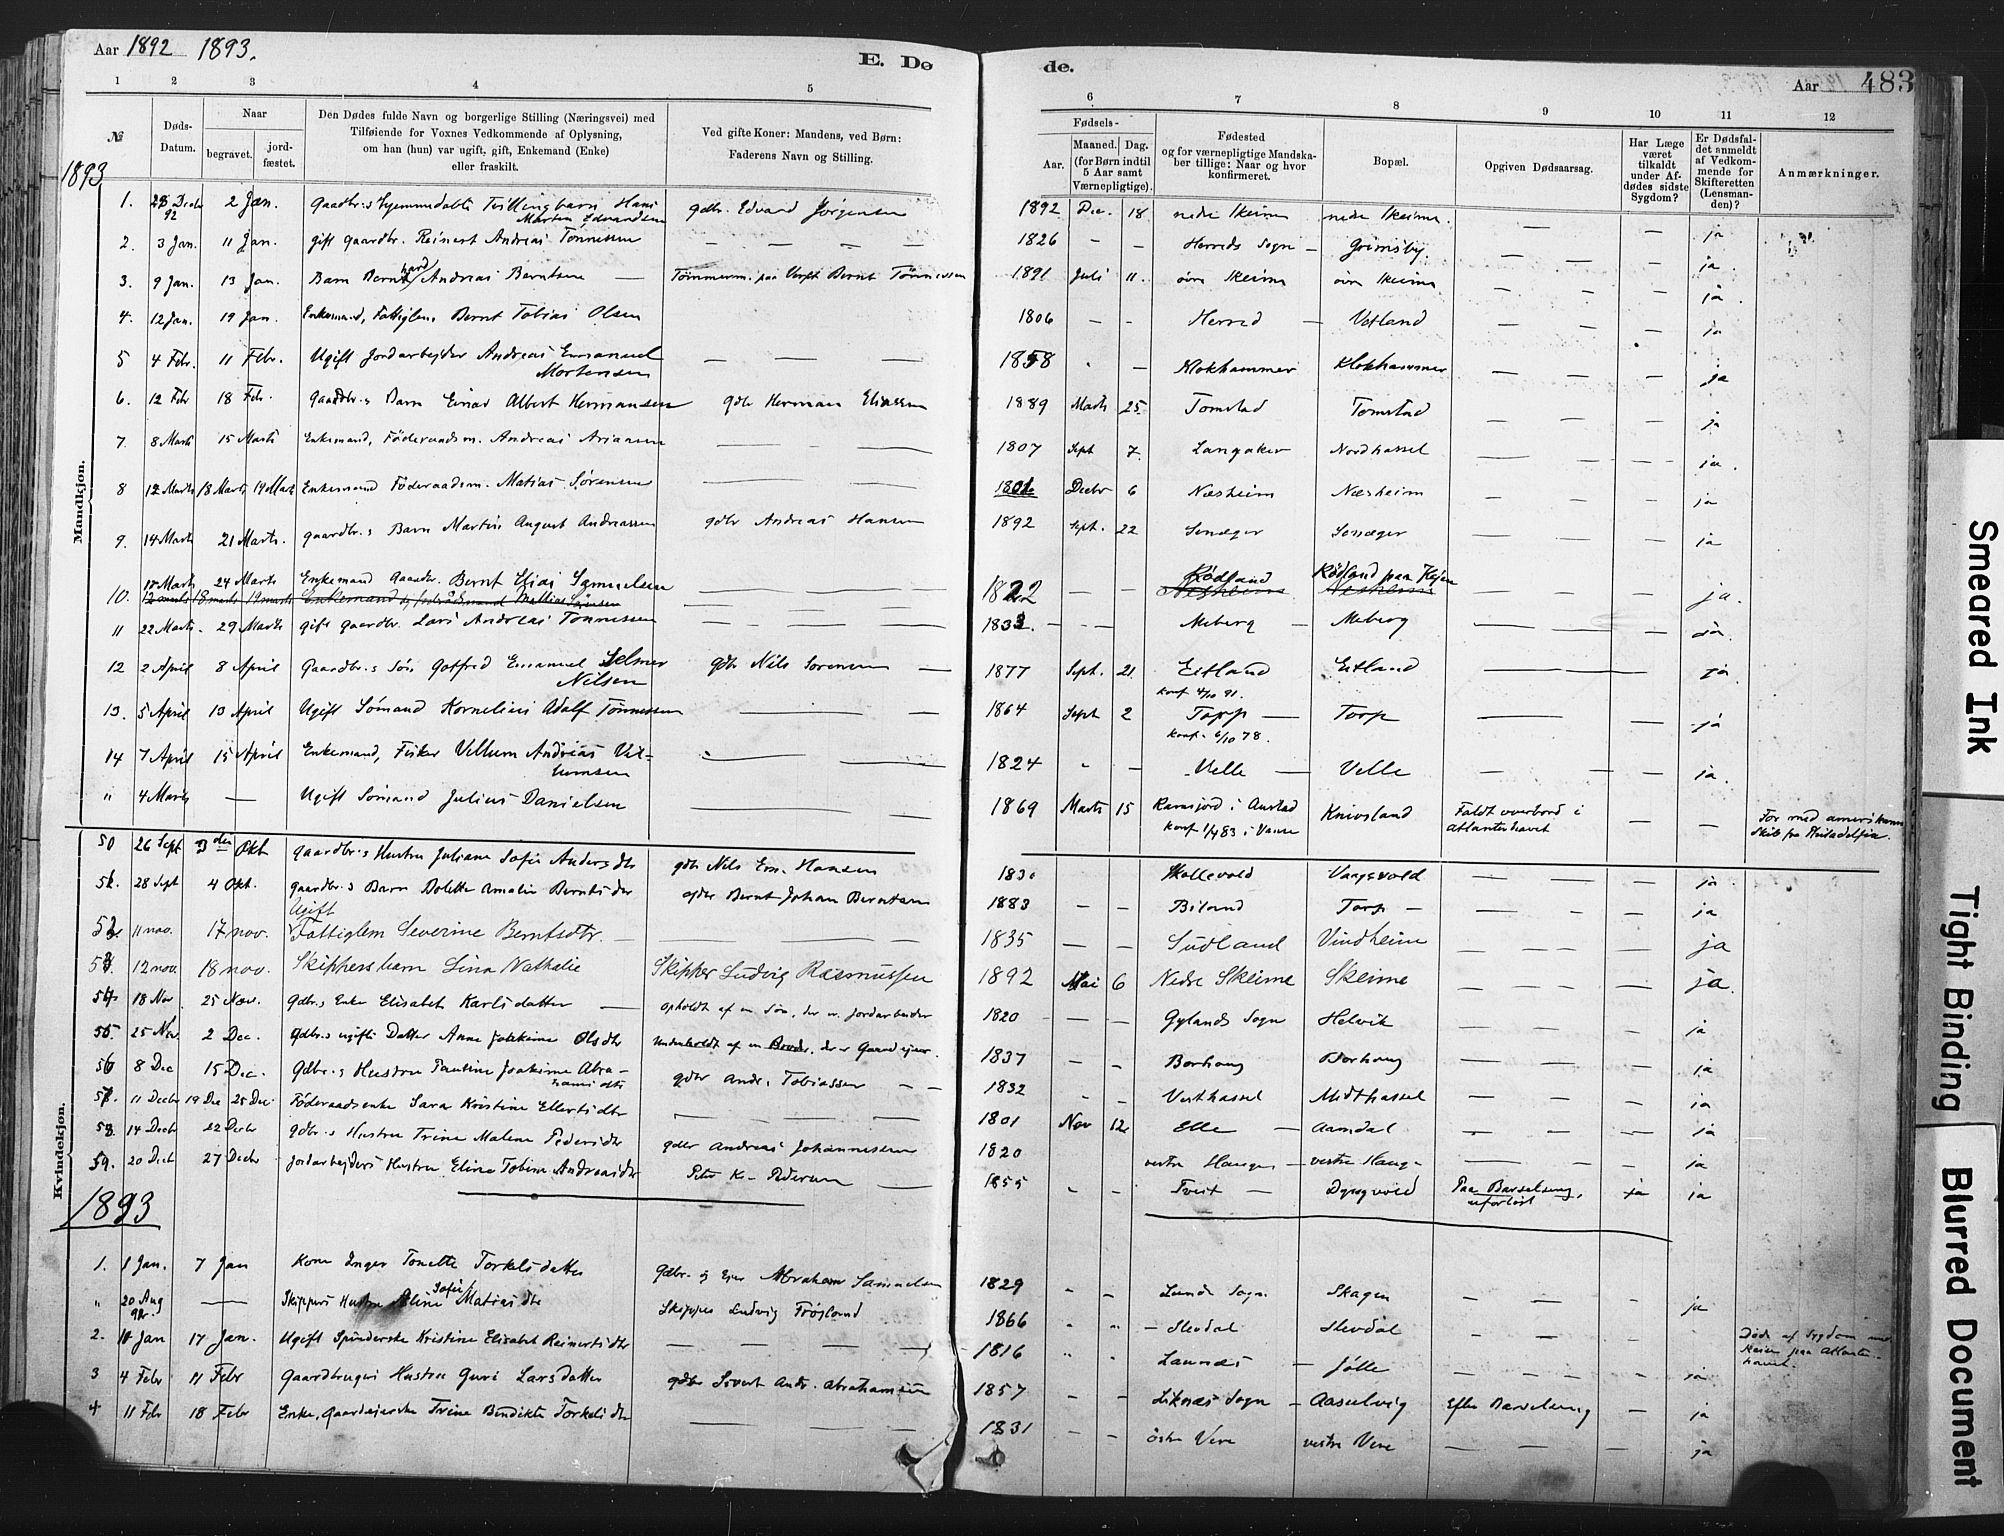 Aar 1892 1893.
E. Dø
de.
Aar
483
1 2 3 4 5 6 7 8 9 10 11 12
№
Døds-Datum.
Naar
begravet.
jord-fæstet.
Den Dødes fulde Navn og borgerlige Stilling (Næringsvei) med
Tilføiende for Voxnes Vedkommende af Oplysning,
om han (hun) var ugift, gift, Enkemand (Enke)
eller fraskilt.
Ved gifte Koner: Mandens, ved Børn:
Faderens Navn og Stilling.
Fødsels-
Aar.
Maaned. Dag.
(for Børn indtil
5 Aar samt
Værnepligtige).
Fødested
og for værnepligtige Mandska-
ber tillige: Naar og hvor
konfirmeret.
Bopæl.
Opgiven Dødsaarsag.
Har Læge
været
tilkaldt
under Af-
dødes sidste
Sygdom?
Er Dødsfal-
det anmeldt
af Vedkom-
mende for
Skifteretten
(Lensman-
den)?
Anmærkninger.
1893
Mandkjøn.
1. 28 Decbr 92 2 Jan. Gaardbr.s hjemmedøbte Tvillingbarn Hans Martin Edvardsen gdbr. Edvard Jörgensen 1892 Dec. 18. nedre Skeime nedre Skeime. — — ja
2. 3 Jan. 11 Jan. gift gaardbr. Reinert Andreas Tönnessen — — — — 1826 — — Herreds Sogn — Grimsby. — — — ja.
3. 9 Jan. 13 Jan. Barn Berntward Andreas Berntsen — Tömmerm. paa Verft Bernt Tönnessen 1891 Juli 11. övre Skeime övre Skeime — — — ja.
4. 12 Jan. 19 Jan. Enkemand, Fattiglem Bernt Tobias Olsen 1806 — — Herred — Vetland — — — ja
5 4 Febr. 11 Febr. Ugift Jordarbejder Andreas Emanuel Mortensen — — — 1858 — Klokhammer Klokhammer — — — ja
6. 12 Febr 18 Febr. Gaardbr.s Barn Einar Albert Hermansen gdbr Herman Eliassen 1889 Marts 25. Tomstad Tomstad — — — ja
7. 8 Marts 15 Marts Enkemand, Föderaadsm. Andreas Ariansen — — 1807 Sept 7. Langaker Nordhassel — — — ja.
8 12 Marts 18 Marts 19 Marts Enkemand Föderaadsm. Matias Sörensen — — 1801 Decbr 6 Næsheim Næsheim — — — ja
9. 14 Marts 21 Marts. gaardbr.s Barn Martin August Andreassen gdbr Andreas Hansen 1892 Sept. 22 — — — ja
10. 17 Marts 24 Marts Enkemand Gaardbr. Bernt Elias Samuelsen — 1822 — — Rödland Rödland paa — — — ja.
12 marts 18 marts 19 marts Enkemand og föderåds mand Mathias Sörensen Nesheim Nesheim
11 22 Marts. 29 Marts gift gaardbr. Lars Andreas Tönnessen — 1833. — — Meberg — Meberg — — ja.
12 2 April 8 April Gaardbr.s Sön Gotfred Emanuel Selmer Nilsen gdbr Nils Sorensen — 1877 Sept. 21. Eitland Eitland — — ja.
konf 4/10 91.
13. 5 April 13 April Ugift Sömand Kornelius Adolf Tönnessen — — 1864 Sept 2 Torp — Torp — — — ja
konf. 6/10 78.
14 7 April 15 April Enkemand, Fisker Villum Andreas Vilhumsen — — 1824 — Velle — Velle — — — ja.
" 4 Marts — Ugift Sömand Julius Danielsen — 1869 Marts 15 i Austad Knivsland Faldt overbord i Atlanterhavet — — For med amerikansk Skib fra Philadelfia.
konf 1/4 83 i Vanse
Kvindekjøn.
50 26 Sept 3 den Okt gaardbr.s Hustru Juliane Sofie Andersdtr gdbr Nils Em. Hansen 1830 Skollevold Vaagsvold — — — ja
51. 28 Sept 4 Okt. gaardbr.s Barn Dolette Amalie Berntsdtr gdbr Bernt Johan Berntsen 1883 — — Biland Torp — — — — ja
52 11 nov. 17 nov. Ugift Fattiglem Severine Berntsdtr. — — — 1835 — — Sudland Vindheim — — — ja
53. 12 nov. 18 nov. Skippersbarn Lina Nathalie Skipper Ludvig Rasmussen 1892 Mai 6 Nedre Skeime Skeime — — — ja.
54 18 Nov 25 Nov. Gdbr.s Enke Elisabet Karlsdatter — opholdt af en Sön, der er Jordarbeider 1820 — — Gylands Sogn Helvik — — — ja
55. 25 Nov 2 Dec. Gdbr.s ugifte Datter Anne Olsdtr Underholdt af en Broder, der er Gaardejer. 1837 — — Borhaug Borhaug — — — ja
56 8 Dec 15 Dec. Gdbr.s Hustru Pauline Joakime Abrahamsdtr gdbr Andr. Tobiassen — — 1832 — Vesthassel Midthassel — — — ja
57. 11 Decbr 19 Dec 25 Dec. Föderaadsenke Sara Kristine Ellertsdtr — — — 1801 Nov 12 Elle — Aamdal — — — ja
58. 14 Decbr 22 Decbr gdbr.s Hustru Trine Malene Pedersdtr gdbr Andreas Johannessen 1820 vestre Hauge — vestre Hauge — — — ja
59. 20 Decbr 27 Decbr Jordarbejders Hustru Eline Tobine Andreasdtr Peter K. Pedersen — 1855 — — Tveit — Dyngvold Paa Barselseng, uforlöst ja ja
1893
1. 1 Jan. 7 Jan Kone Inger Tonette Torkelsdatter Gdbr. og Ejer Abraham Samuelsen 1829 — Lunde Sogn Skagen — — — ja
" 20 Aug 92. — Skippers Hustru Eline Sofie Matiasdtr Skipper Ludvig Fröjland 1866 — Stevdal Stevdal — — Döde af Sygdom med Reisen paa Atlanterhavet.
2. 10 Jan 17 Jan. Ugift Spinderske Kristine Elisabet Reinertsdtr — — — 1816 Launæs — Jölle — — — ja
3 4 Febr 11 Febr Gaardbrugers Hustru Guri Larsdatter gdbr Sivert Andr. Abrahamsen 1857 — — Liknæs Sogn — Aaselvig Efter Barselseng — ja
4 11 Febr 18 Febr Enke, Gaardejerske Trine Bendikte Torkelsdtr — 1831 — — östre Vere vestre Vere — — — ja
Smeared Ink
Tight Binding
Blurred Document